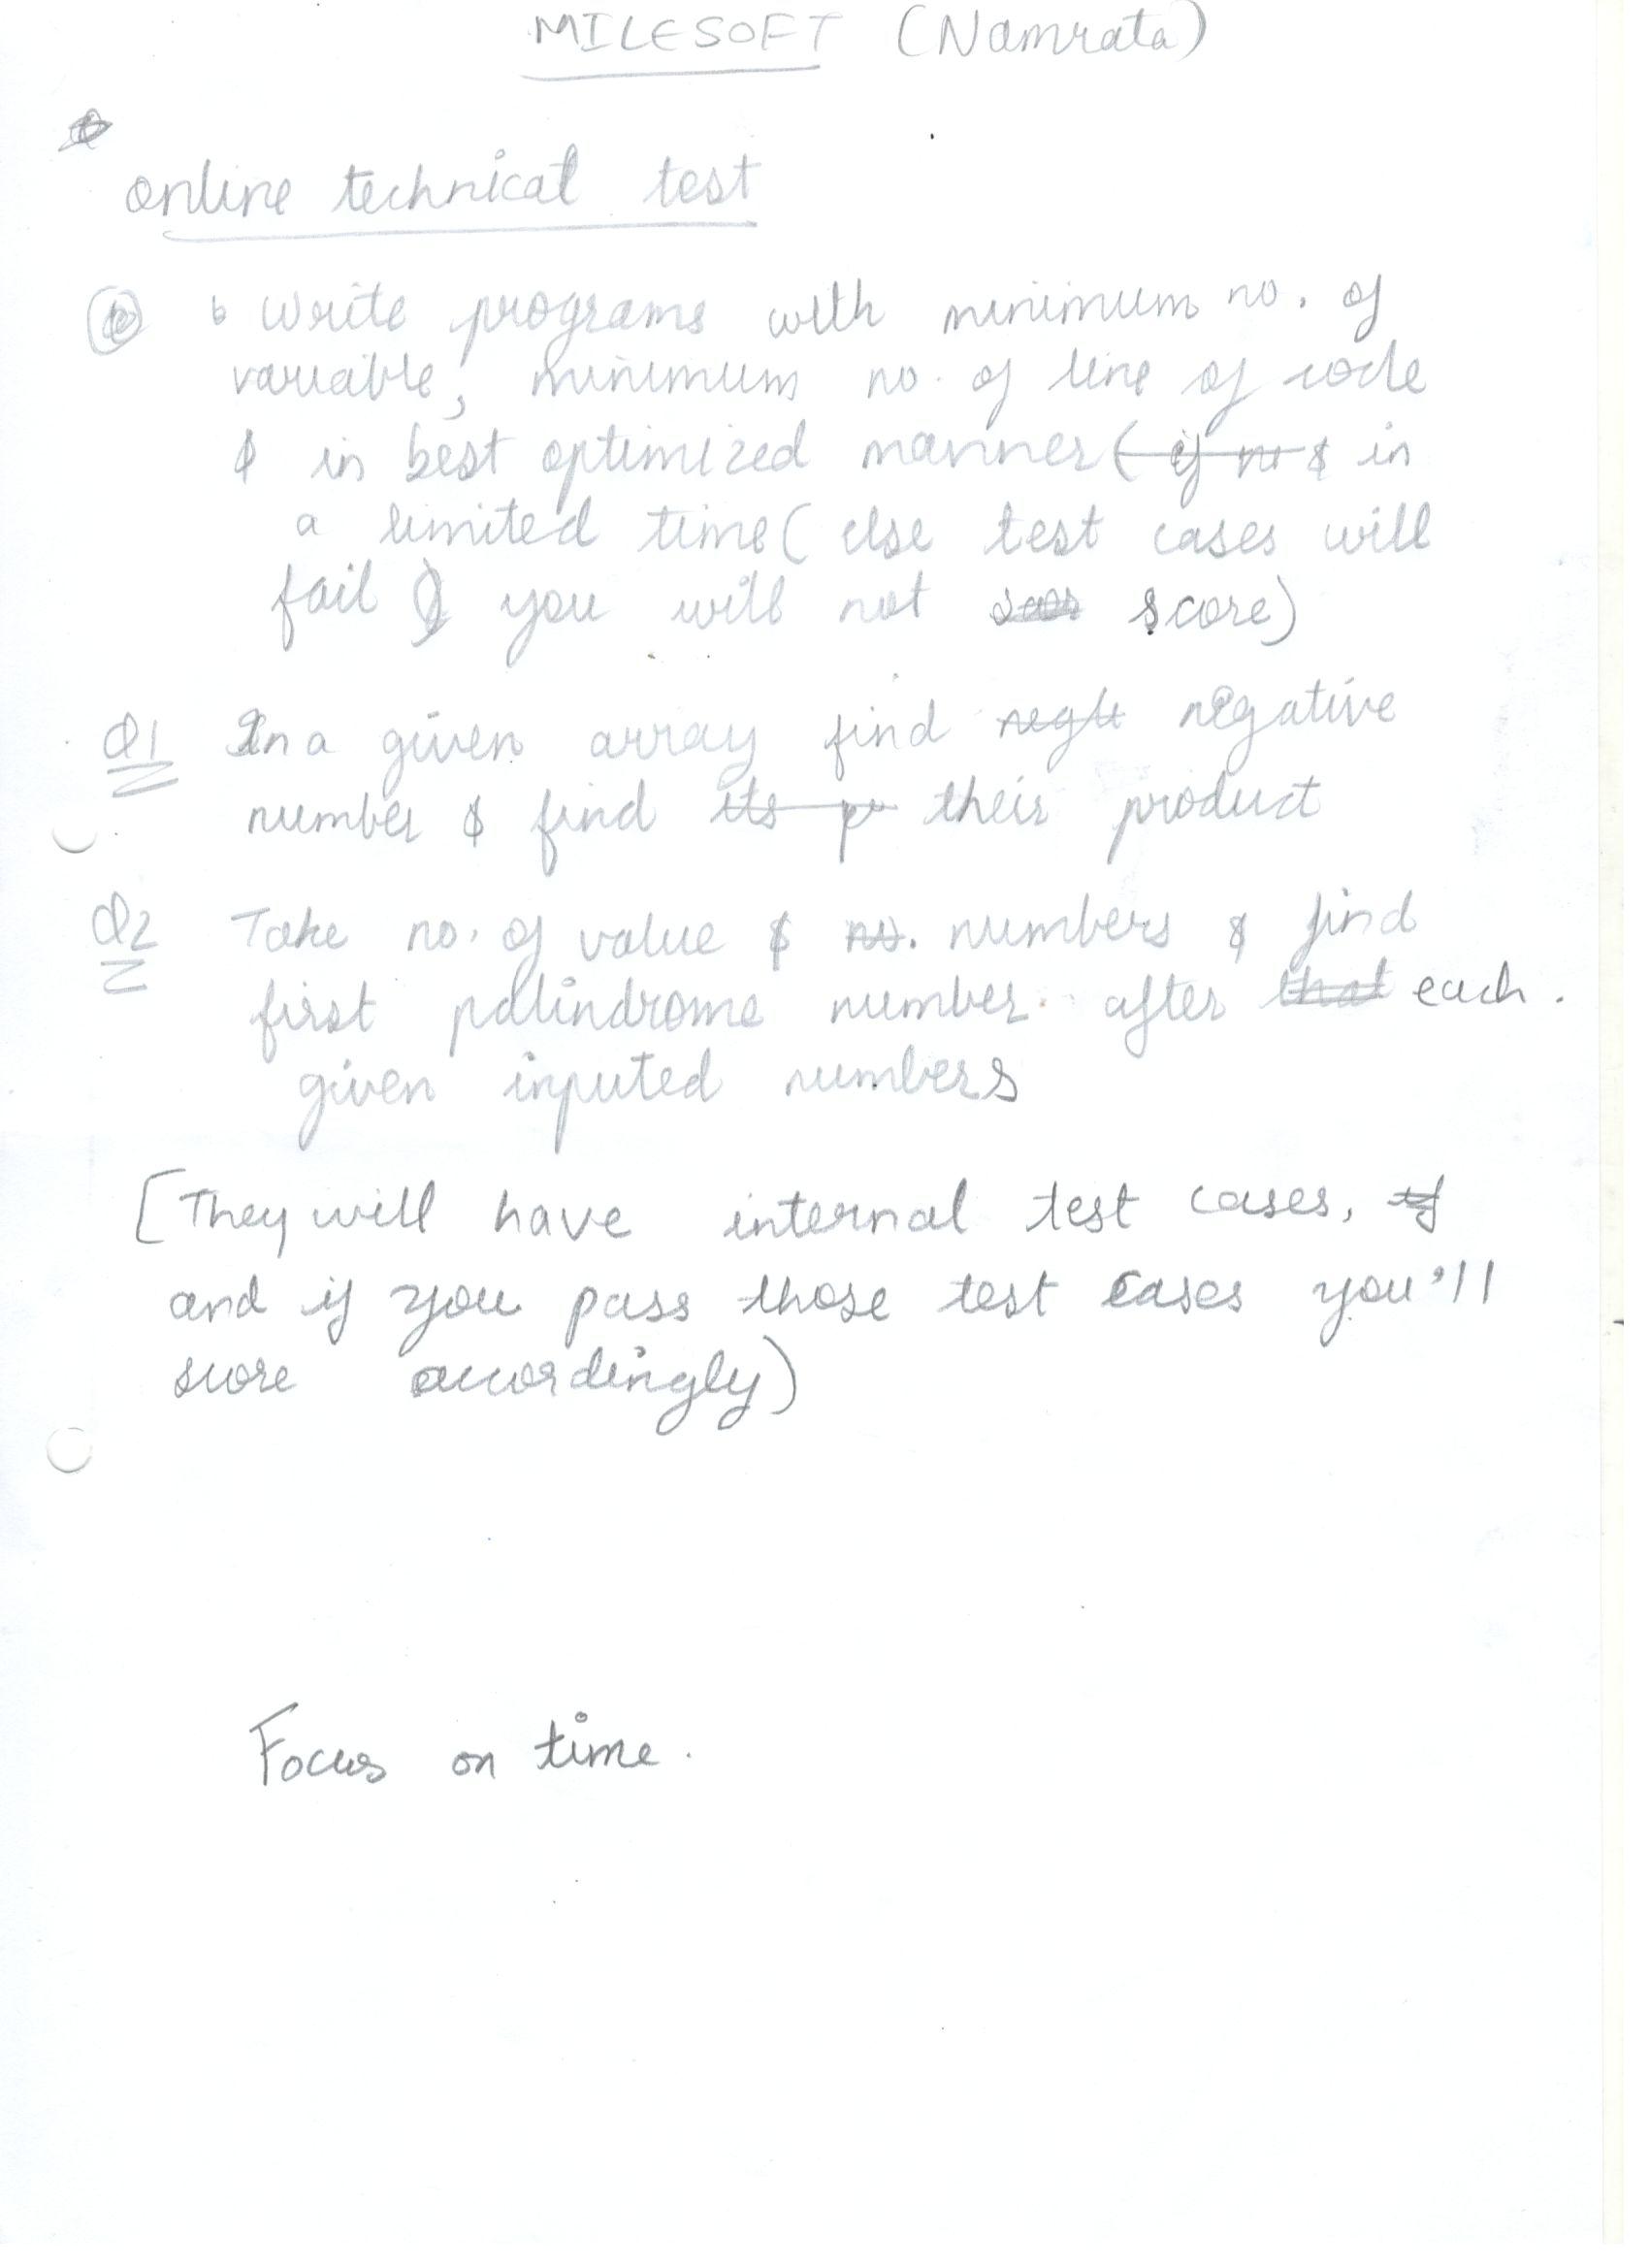 MILESOFT (Namrata)
online technical test
Write programs with minimum no. of
variable, minimum no. of line of code
& in best optimized manner & in
a limited time (else test cases will
fail & you will not score)
Q1 In a given array find negative
number & find their product
Q2 Take no. of value & numbers & find
first pallindrome number after each
given inputed numbers
[They will have internal test cases,
and if you pass those test cases you'll
score accordingly)
Focus on time.